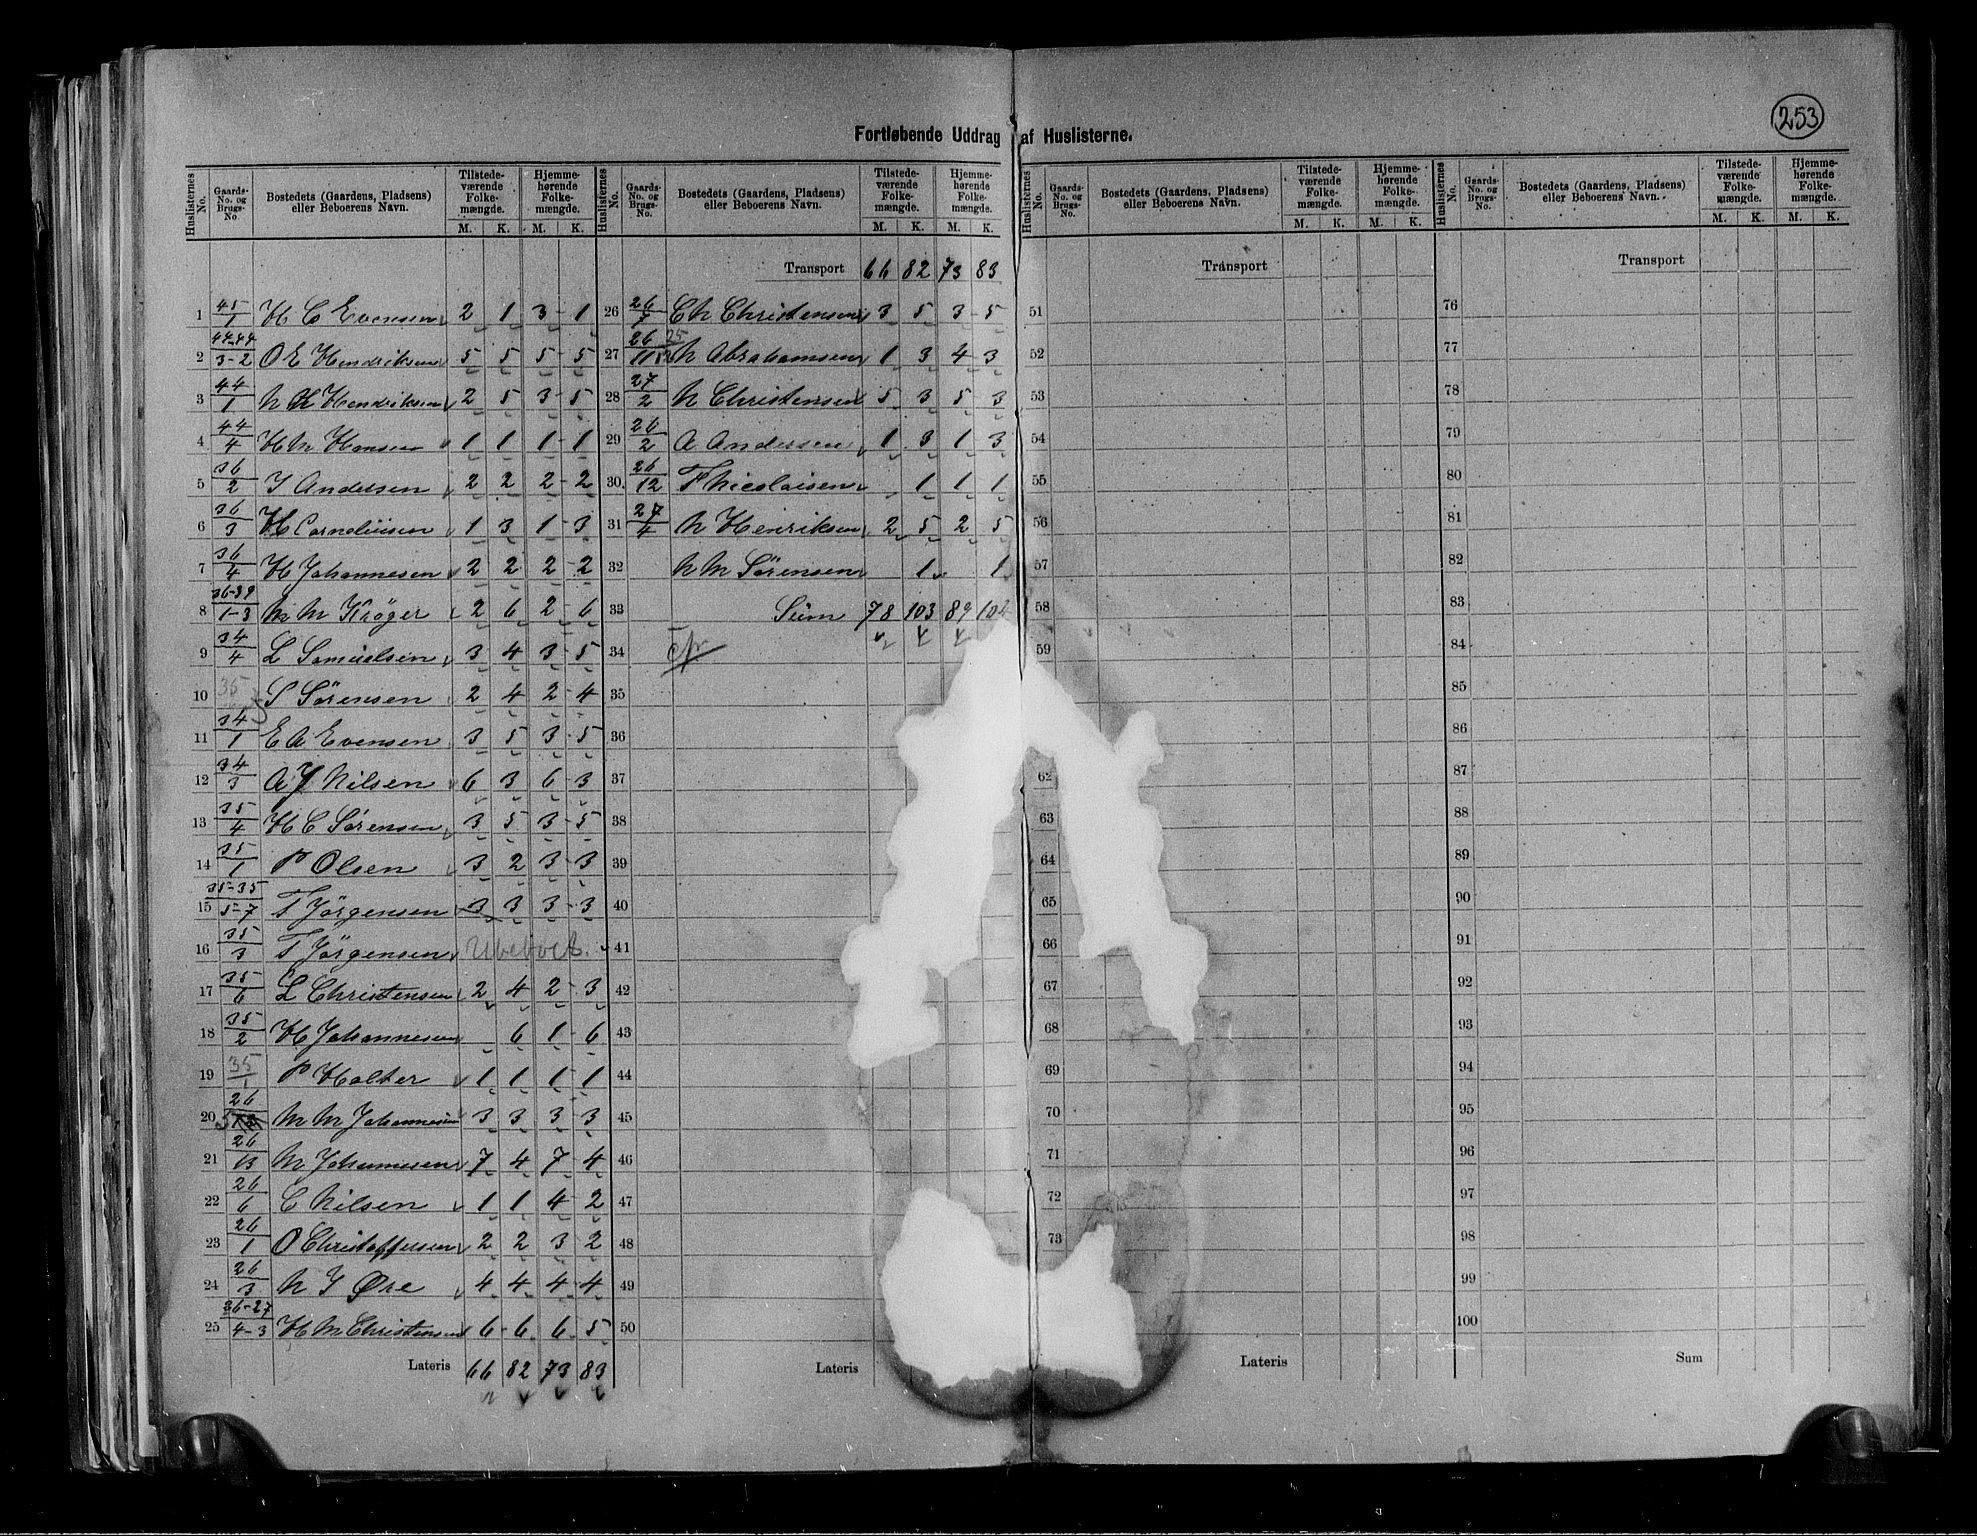 253
Fortløbende Uddrag af Huslisterne.
Huslisternes No. | Gaards-No. og Brugs-No | Bostedets (Gaardens, Pladsens) eller Beboerens Navn. | Tilstedeværende Folkemængde. M. K. | Hjemmehørende Folkemængde. M. K.
1 45/1 H C Evensen 2 1 3 1
2 44-44/3-2 O E Hendriksen 5 5 5 5
3 44/1 N H Hendriksen 2 5 3 5
4 44/4 H N Hansen 1 1 1 1
5 36/2 J Andersen 2 2 2 2
6 36/3 H Corneliusen 1 3 1 3
7 36/4 H Johannesen 2 2 2 2
8 36-39/1-3 M M Krøger 2 6 2 6
9 34/4 L Samuelsen 3 4 3 5
10 35 S Sörensen 2 4 2 4
11 34/1 E A Evensen 3 5 3 5
12 34/3 A J Nilsen 6 3 6 3
13 35/4 H C Sörensen 3 5 3 5
14 35/1 P Olsen 3 2 3 3
15 35-35/5-7 T Jörgensen 3 3 3 3
16 35/3 T Jörgensen Ubeboet.
17 35/6 L Christensen 2 4 2 3
18 35/2 H Johannesen 6 1 6
19 35/1 P Holter 1 1 1 1
20 26 M M Johannesen 3 3 3 3
21 26/13 M Johannesen 7 4 7 4
22 26/6 C Nilsen 1 1 4 2
23 26/1 O Christoffersen 2 2 3 2
24 26/3 N J Øre 4 4 4 4
25 36-27/4-3 H M Christensen 6 6 6 5
Lateris 66 82 73 83
Huslisternes No. | Gaards-No. og Brugs-No. | Bostedets (Gaardens, Pladsens) eller Beboerens Navn. | Tilstedeværende Folkemængde. M. K. | Hjemmehørende Folkemængde. M. K.
Transport 66 82 73 83
26 26/7 Ch Christensen 3 5 3 5
27 26 25 N Abrahamsen 1 3 4 3
28 27/2 N Christensen 5 3 5 3
29 26/2 A Andersen 1 3 1 3
30 26/12 F Nicolaisen 1 1 1
31 27/4 N Henriksen 2 5 2 5
32 N M Sörensen 1 1
33 Sum 78 103 89 104
34 cfr
35
36
37
38
39
40
41
42
43
44
45
46
47
48
49
50
Lateris
Huslisternes No. | Gaards-No. og Brugs-No. | Bostedets (Gaardens, Pladsens) eller Beboerens Navn. | Tilstedeværende Folkemængde. M. K. | Hjemmehørende Folkemængde. M. K.
Transport
51
52
53
54
55
56
57
58
59
62
63
64
65
66
67
68
69
70
71
72
73
Lateris
Huslisternes No. | Gaards-No. og Brugs-No. | Bostedets (Gaardens, Pladsens) eller Beboerens Navn. | Tilstedeværende Folkemængde. M. K. | Hjemmehørende Folkemængde. M. K.
Transport
76
77
78
79
80
81
82
83
84
85
86
87
88
89
90
91
92
93
94
95
96
97
98
99
100
Sum